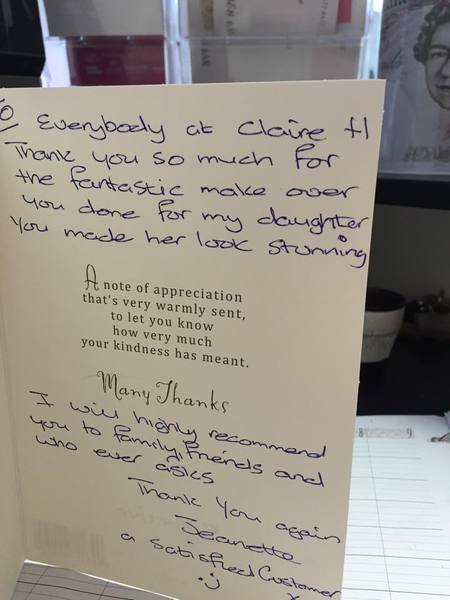 To Everybody at Claire H
Thank you so much for
the fantastic make over
you done for my daughter
you made her look stunning
A note of appreciation
that's very warmly sent,
to let you know
how very much
your kindness has meant.
Many Thanks
I will highly recommend
you to family, friends and
who ever asks
Thank you again
Jeanette
a satisfied Customer
x